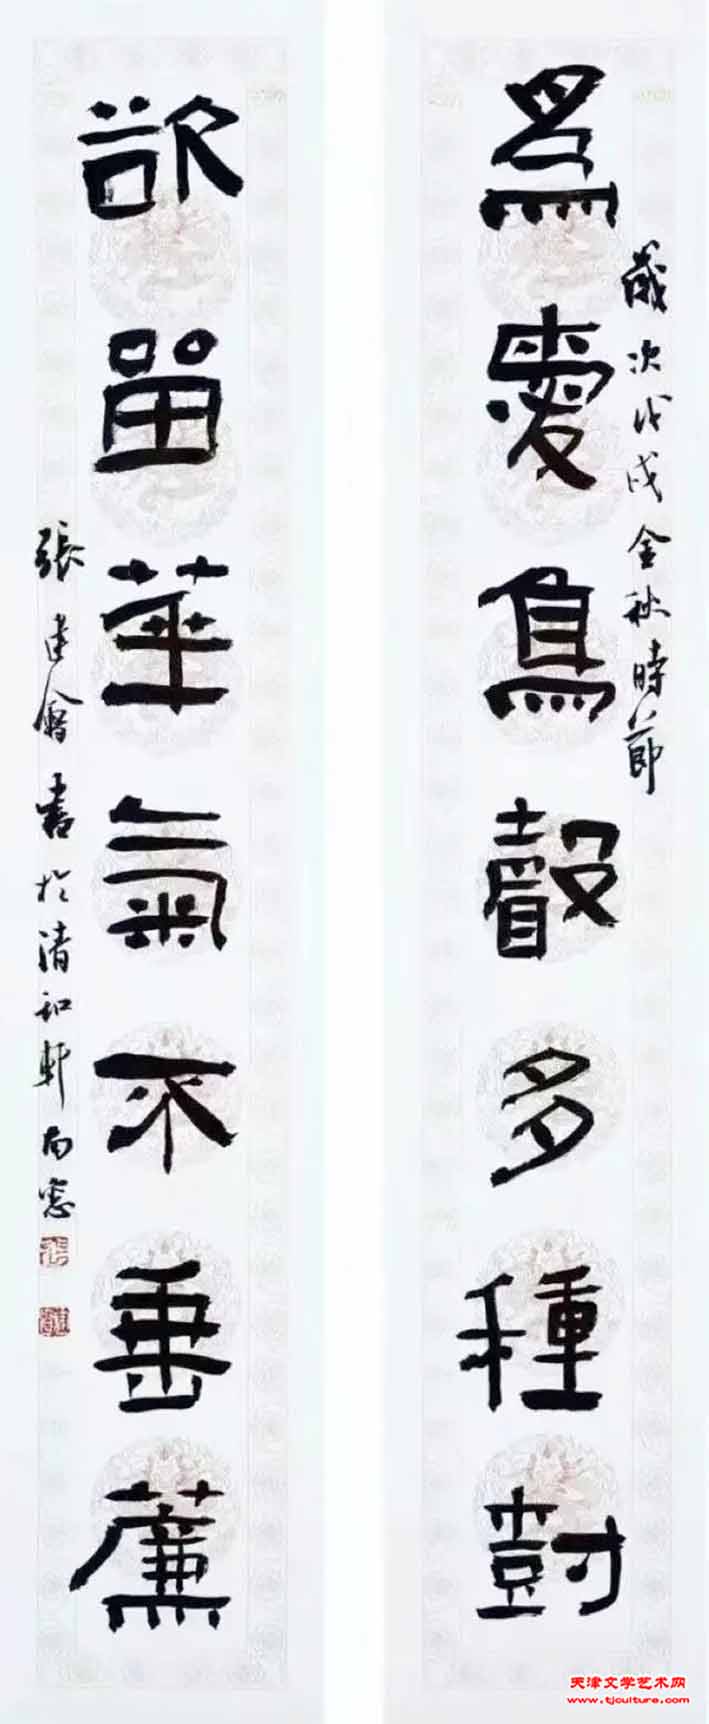 歲次戊戌金秋時節
為愛鳥聲多種尌
欲留華氣不垂薕
張建會書於清和軒南窓
天津文学艺术网
www.tjculture.com